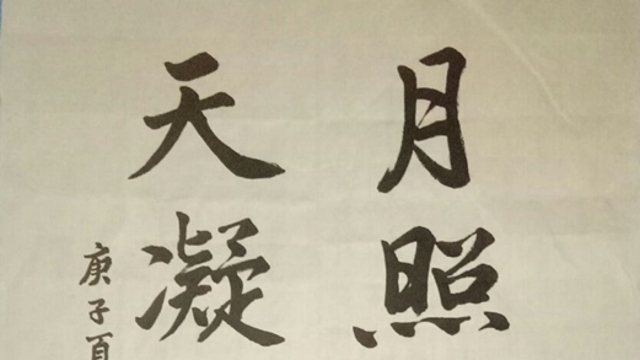 月照
天凝
庚子